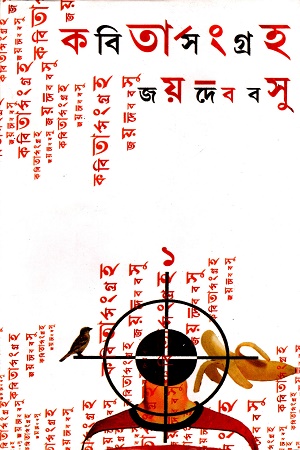 কবিতাসংগ্রহ
জয়দেব বসু
১